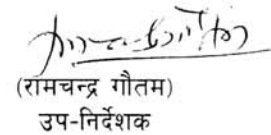 (रामचन्द्र गौतम)
उप-निर्देशक